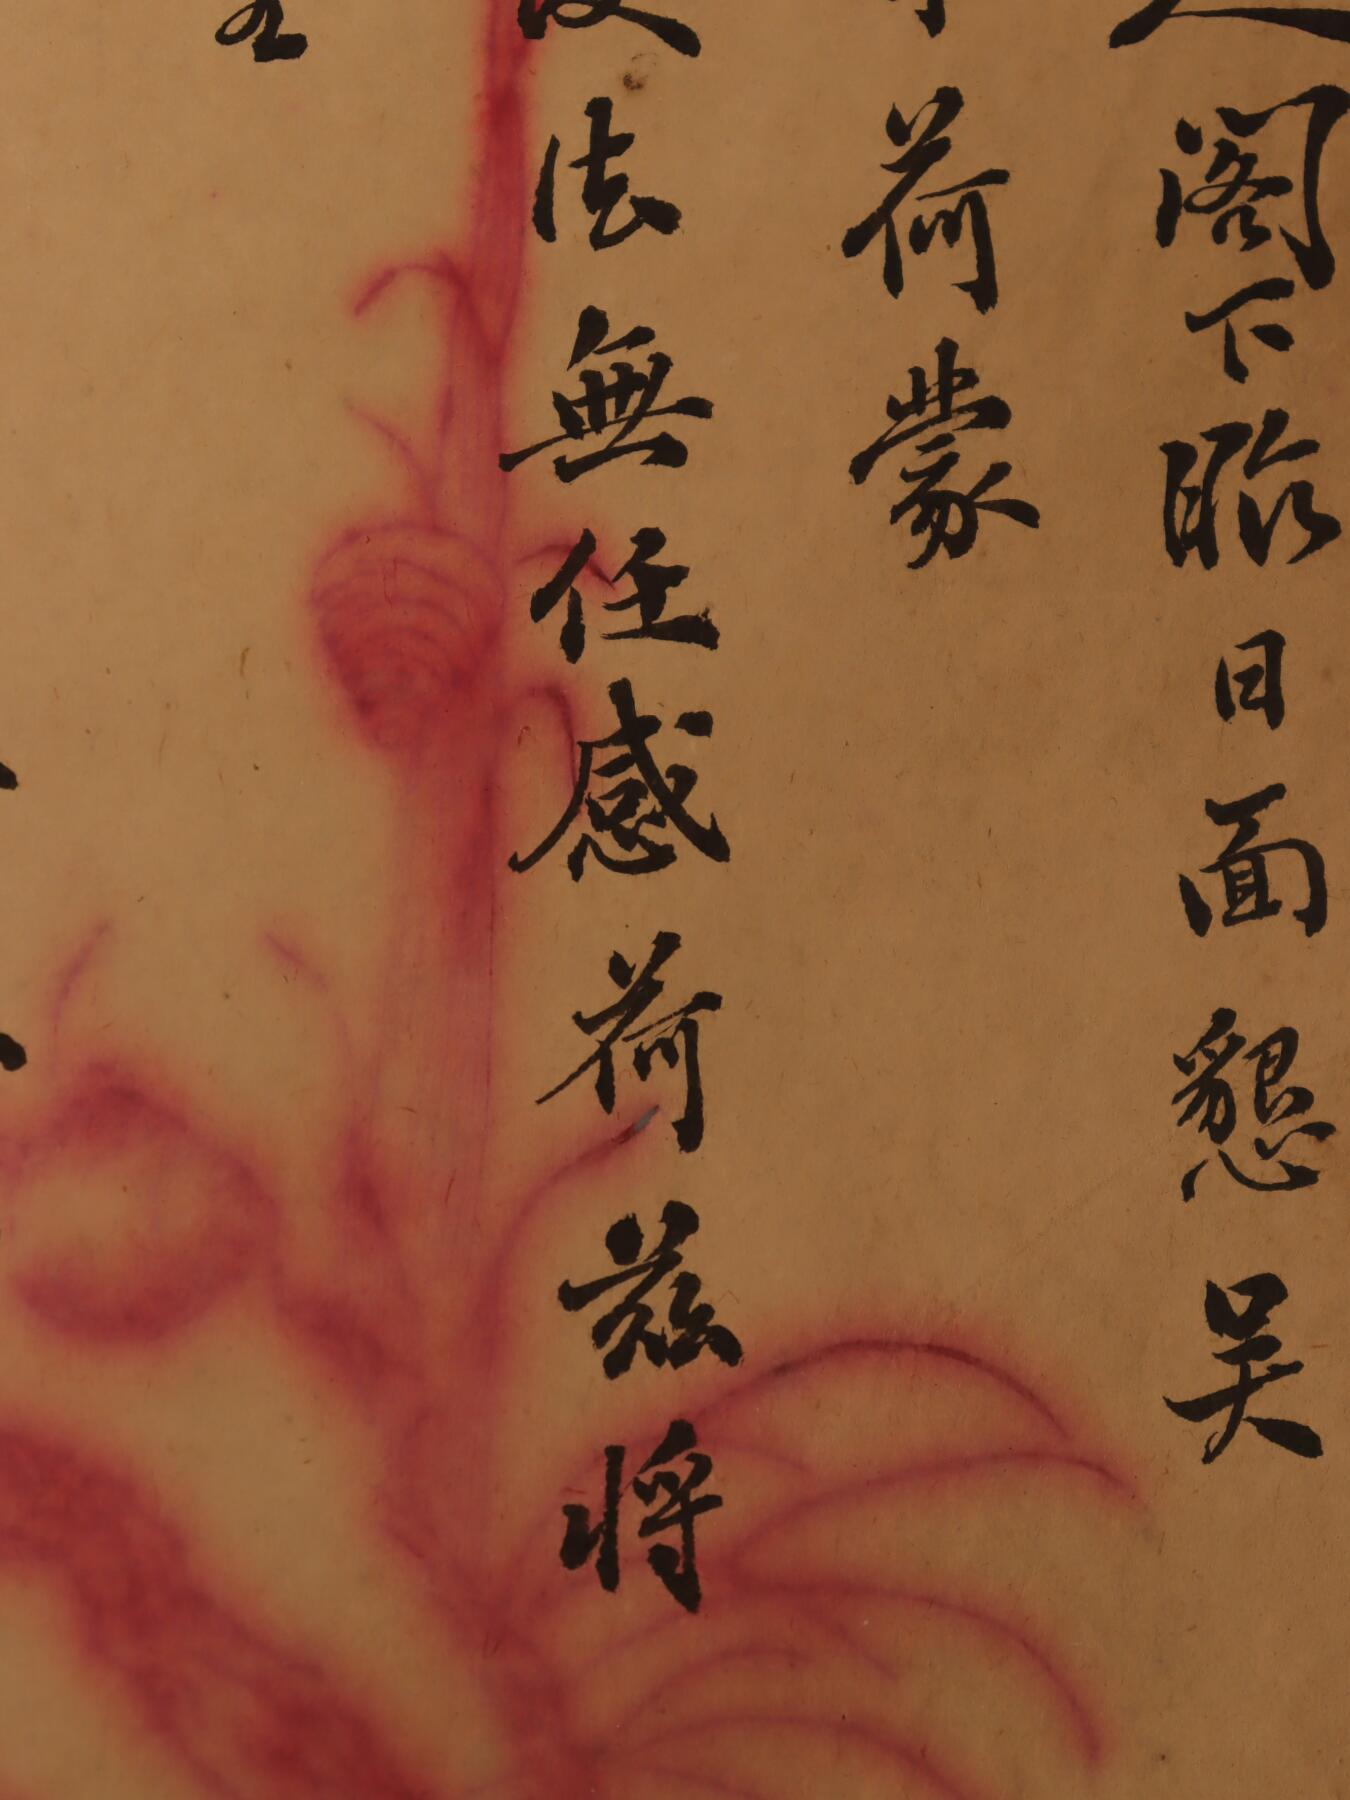 閣下臨日面懇吳
荷蒙
法無任感荷茲將